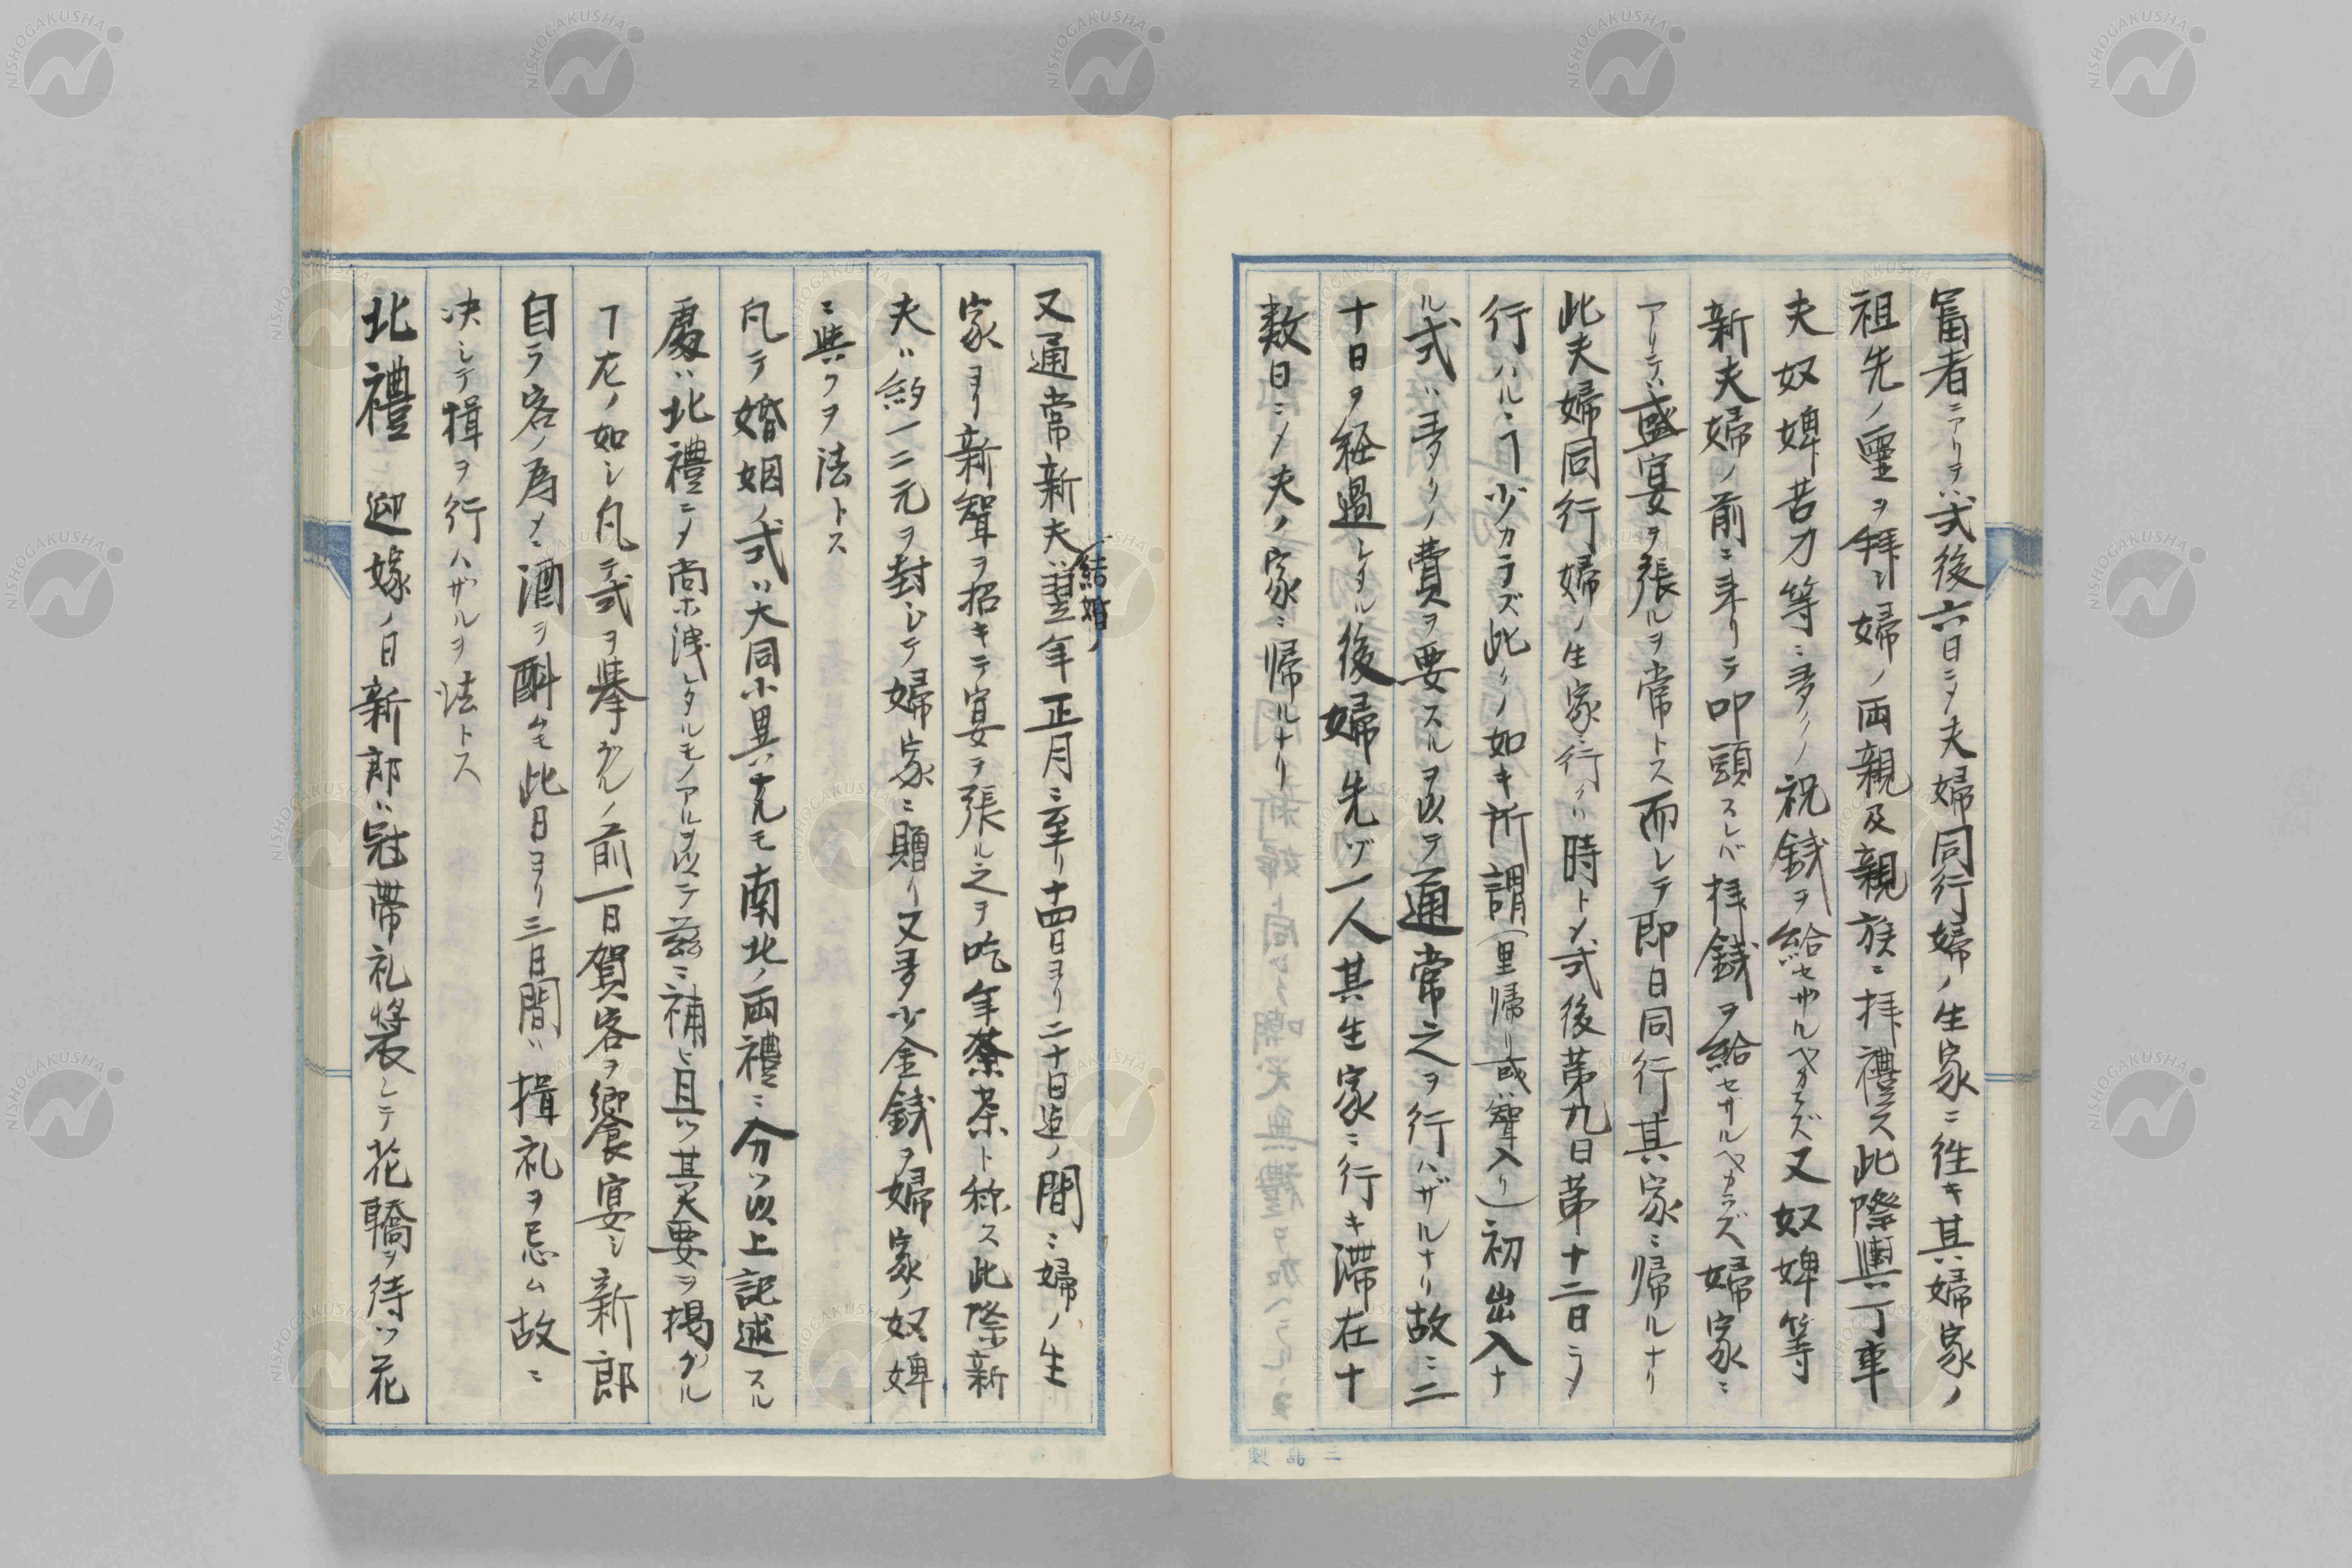 富者ニアリテハ式後六日ニメ夫婦同行婦ノ生家ニ徃キ其婦家ノ
祖先ノ靈ヲ拜シ婦ノ両親及親族ニ拝禮ス此際輿丁車
夫奴婢苦力等ニ多クノ祝銭ヲ給セザルベカラズ又奴婢等
新夫婦ノ前ニ来リテ叩頭スレバ拝銭ヲ給セサルベカラズ婦家ニ
アリテハ盛宴ヲ張ルヲ常トス而レテ即日同行其家ニ帰ルナリ
此夫婦同行婦ノ生家ニ行クハ時トメ式後第九日第十二日ニメ
行ハルヿ少カラズ此クノ如キ所謂(里帰リ或ハ聟入リ)初出入ナ
ル式ハ多クノ費ヲ要スルヲ以テ通常之ヲ行ハザルナリ故ニ二
十日ヲ経過レタル後婦先ヅ一人其生家ニ行キ滞在十
数日ニメ夫ノ家ニ帰ルナリ
又通常新夫ハ結婚ノ翌年正月ニ至リ十四日ヨリ二十日迠ノ間ニ婦ノ生
家ヨリ新聟ヲ招キテ宴ヲ張ル之ヲ吃年茶ト称ス此際新
夫ハ約一二元ヲ封シテ婦家ニ贈リ又多少金銭ヲ婦家ノ奴婢
ニ與フヲ法トス
凡テ婚姻ノ式ハ大同小異ナルモ南北ノ両禮ニ分ツ以上記述スル
處ハ北禮ニメ尚ホ洩レタルモノアルヲ以テ茲ニ補ヒ且ツ其大要ヲ掲グル
ヿ左ノ如シ凡テ式ヲ挙グルノ前一日賀客ヲ饗宴シ新郎
自ラ客ノ為メニ酒ヲ酙ムモ此日ヨリ三日間ハ揖礼ヲ忌ム故ニ
决シテ揖ヲ行ハザルヲ法トス
北禮 迎嫁ノ日新郎ハ冠帯礼装シテ花轎ヲ待ツ花